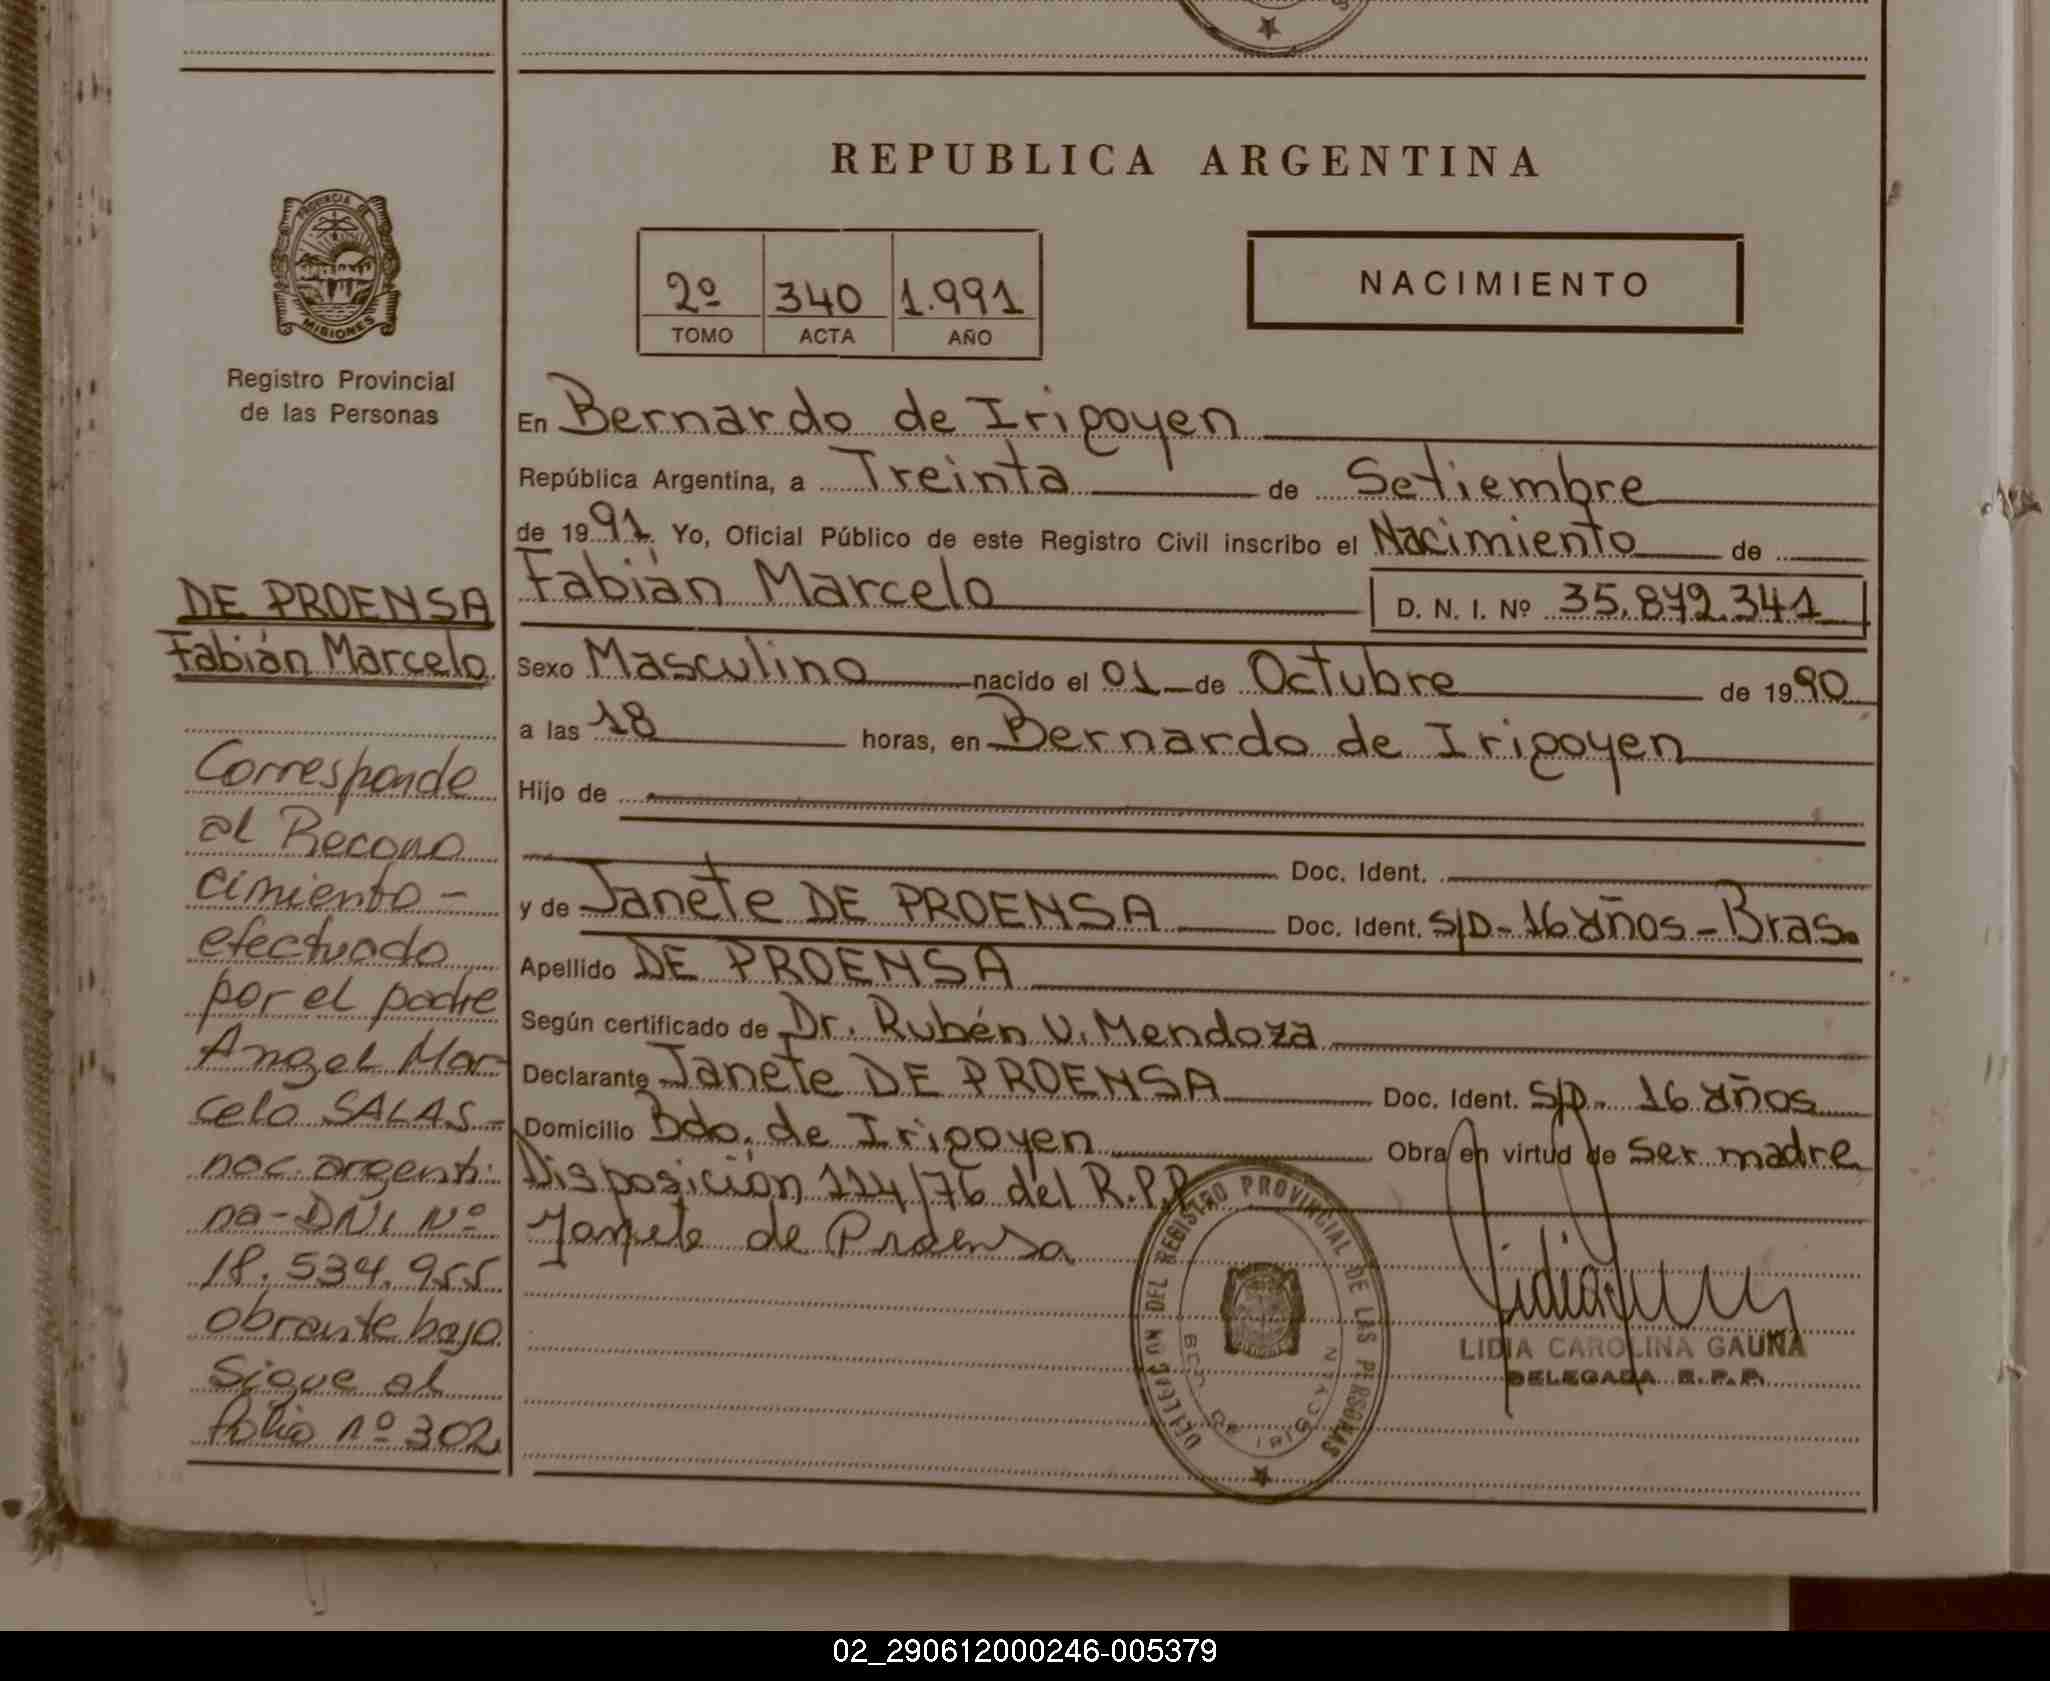 REPUBLICA ARGENTINA
PROVINCIA DE
MISIONES
Registro Provincial
de las Personas
2º 340 1.991
TOMO ACTA AÑO
NACIMIENTO
En Bernardo de Irigoyen
República Argentina, a Treinta de Setiembre
de 1991. Yo, Oficial Público de este Registro Civil inscribo el Nacimiento de
Fabián Marcelo D. N. I. Nº 35.872.341
Sexo Masculino nacido el 01 de Octubre de 1990
a las 18 horas, en Bernardo de Irigoyen
Hijo de
Doc. Ident.
y de Janete DE PROENSA Doc. Ident. S/D- 16 años - Bras.
Apellido DE PROENSA
Según certificado de Dr. Rubén V. Mendoza
Declarante Janete DE PROENSA Doc. Ident. S/D- 16 años
Domicilio Bdo. de Irigoyen Obra en virtud de ser madre
Disposición 114/76 del R.P.P.
Janete de Proensa
DELEGACION DEL REGISTRO PROVINCIAL DE LAS PERSONAS
BDO DE IRIGOYEN
LIDIA CAROLINA GAUNA
DELEGADA R.P.P.
DE PROENSA
Fabián Marcelo
Corresponde
al Recono
cimiento -
efectuado
por el padre
Angel Mar-
celo SALAS -
nac. argenti-
na - DNI Nº
18.534.955
obrante bajo
Sigue al
folio nº 302
02_290612000246-005379